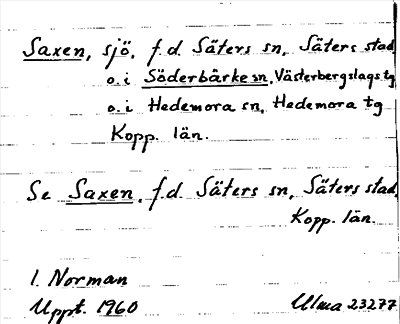 Saxen, sjö, f.d. Säters sn, Säters stad
o. i Söderbärke sn, Västerbergslags tg
o. i Hedemora sn, Hedemora tg
Kopp. län.
Se Saxen, f.d. Säters sn, Säters stad,
Kopp. län.
I. Norman
Uppt. 1960 Ulma 23277